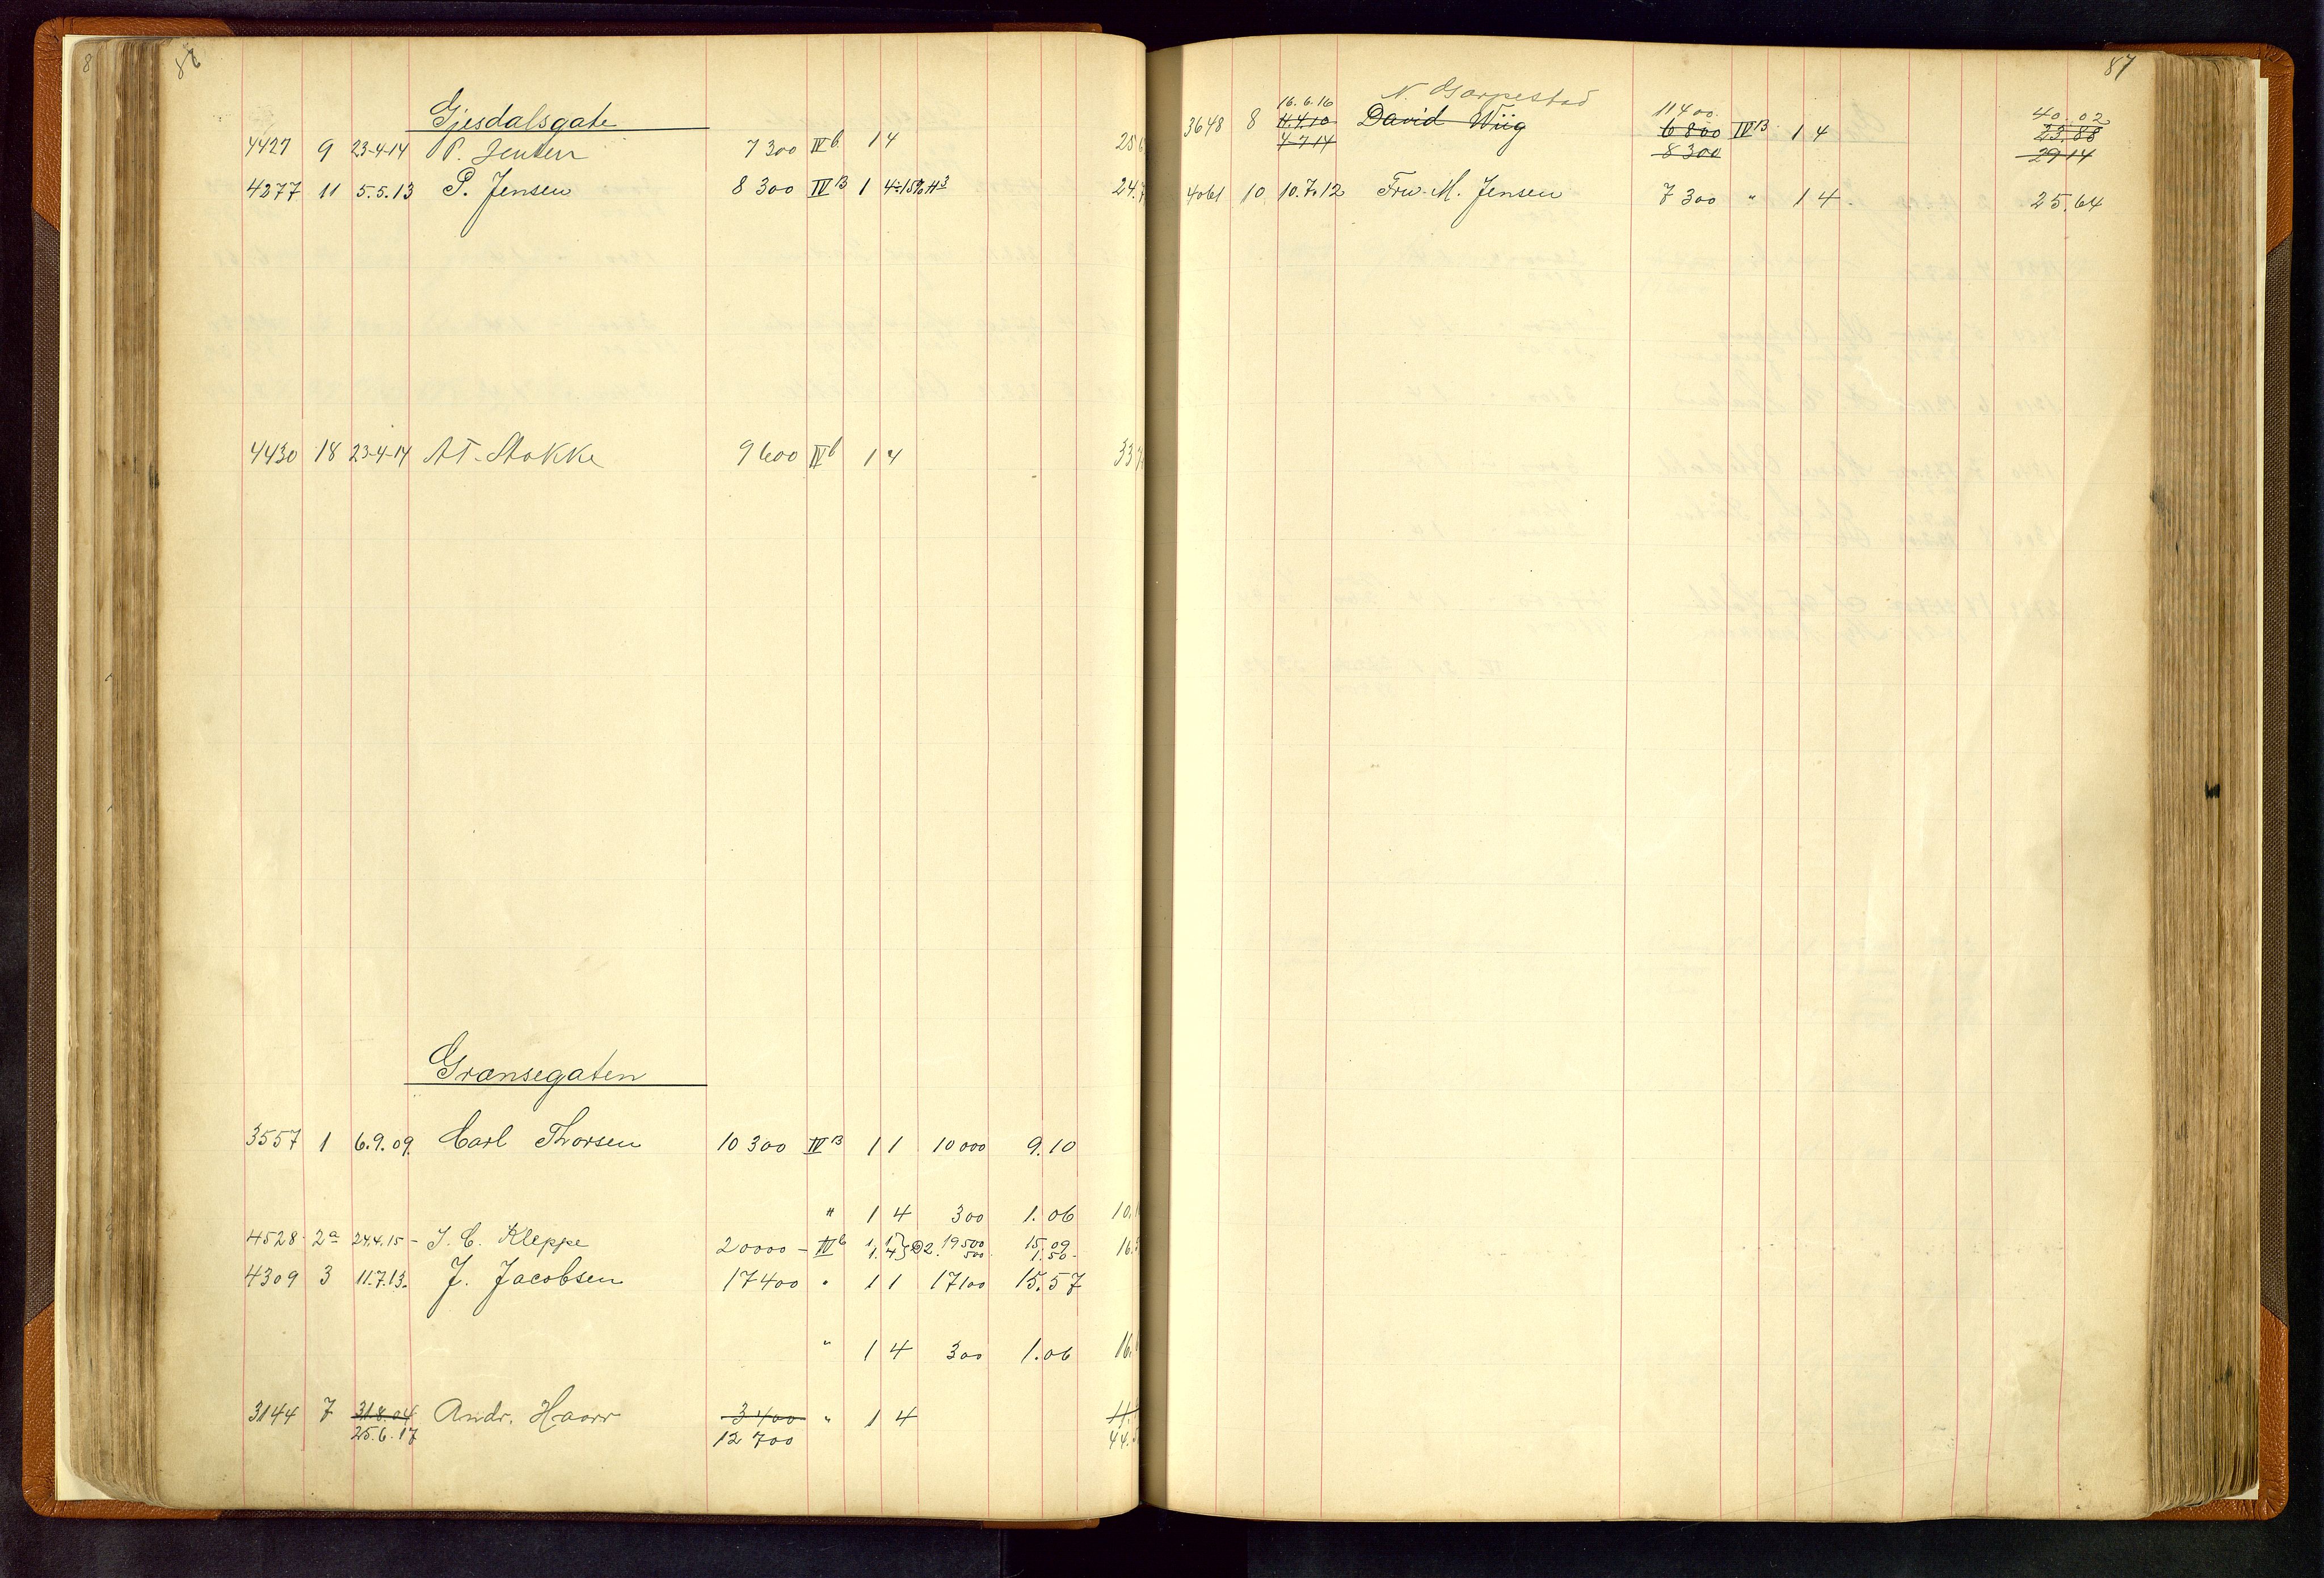 86
Gjesdalsgate
4427 9 23-4-14 P. Jensen 7300 IVb 1 4 25.6
4277 11 5.5.13 P. Jensen 8300 IVB 1 4 ÷ 15% H3 24.7
4430 18 23-4-14 A T. Stokke 9600 IVb 1 4 33
Grænsegaten
3557 1 6.9.09. Carl Thorsen 10300 IVB 1 1 10000 9.10
" 1 4 300 1.06 10.
4528 2a 24.4.15 - J. C. Kleppe 20000 - IVb 1. 1 19500 15.09 16.
1. 4 500 1.50
4309 3 11.7.13. J. Jacobsen 17400 " 1 1 17100 15.57
" 1 4 300 1.06 16.
3144 7 31.8.04 Andr. Haarr 3400 " 1 4 11.
25.6.17 12700 44.
87
16.6.16 N. Garpestad 11400 40.02
3648 8 11.4.10 David Wiig 6800 IVB 1 4 23.88
4-7-14 8300 29.14
4061 10 10.7.12 Fru. M. Jensen 7300 " 1 4. 25.64